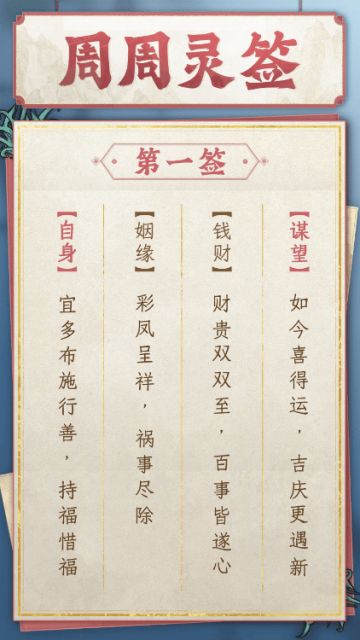 周周灵签
第一签
【谋望】
如今喜得运，吉庆更遇新
【钱财】
财贵双双至，百事皆遂心
【姻缘】
彩凤呈祥，祸事尽除
【自身】
宜多布施行善，持福惜福